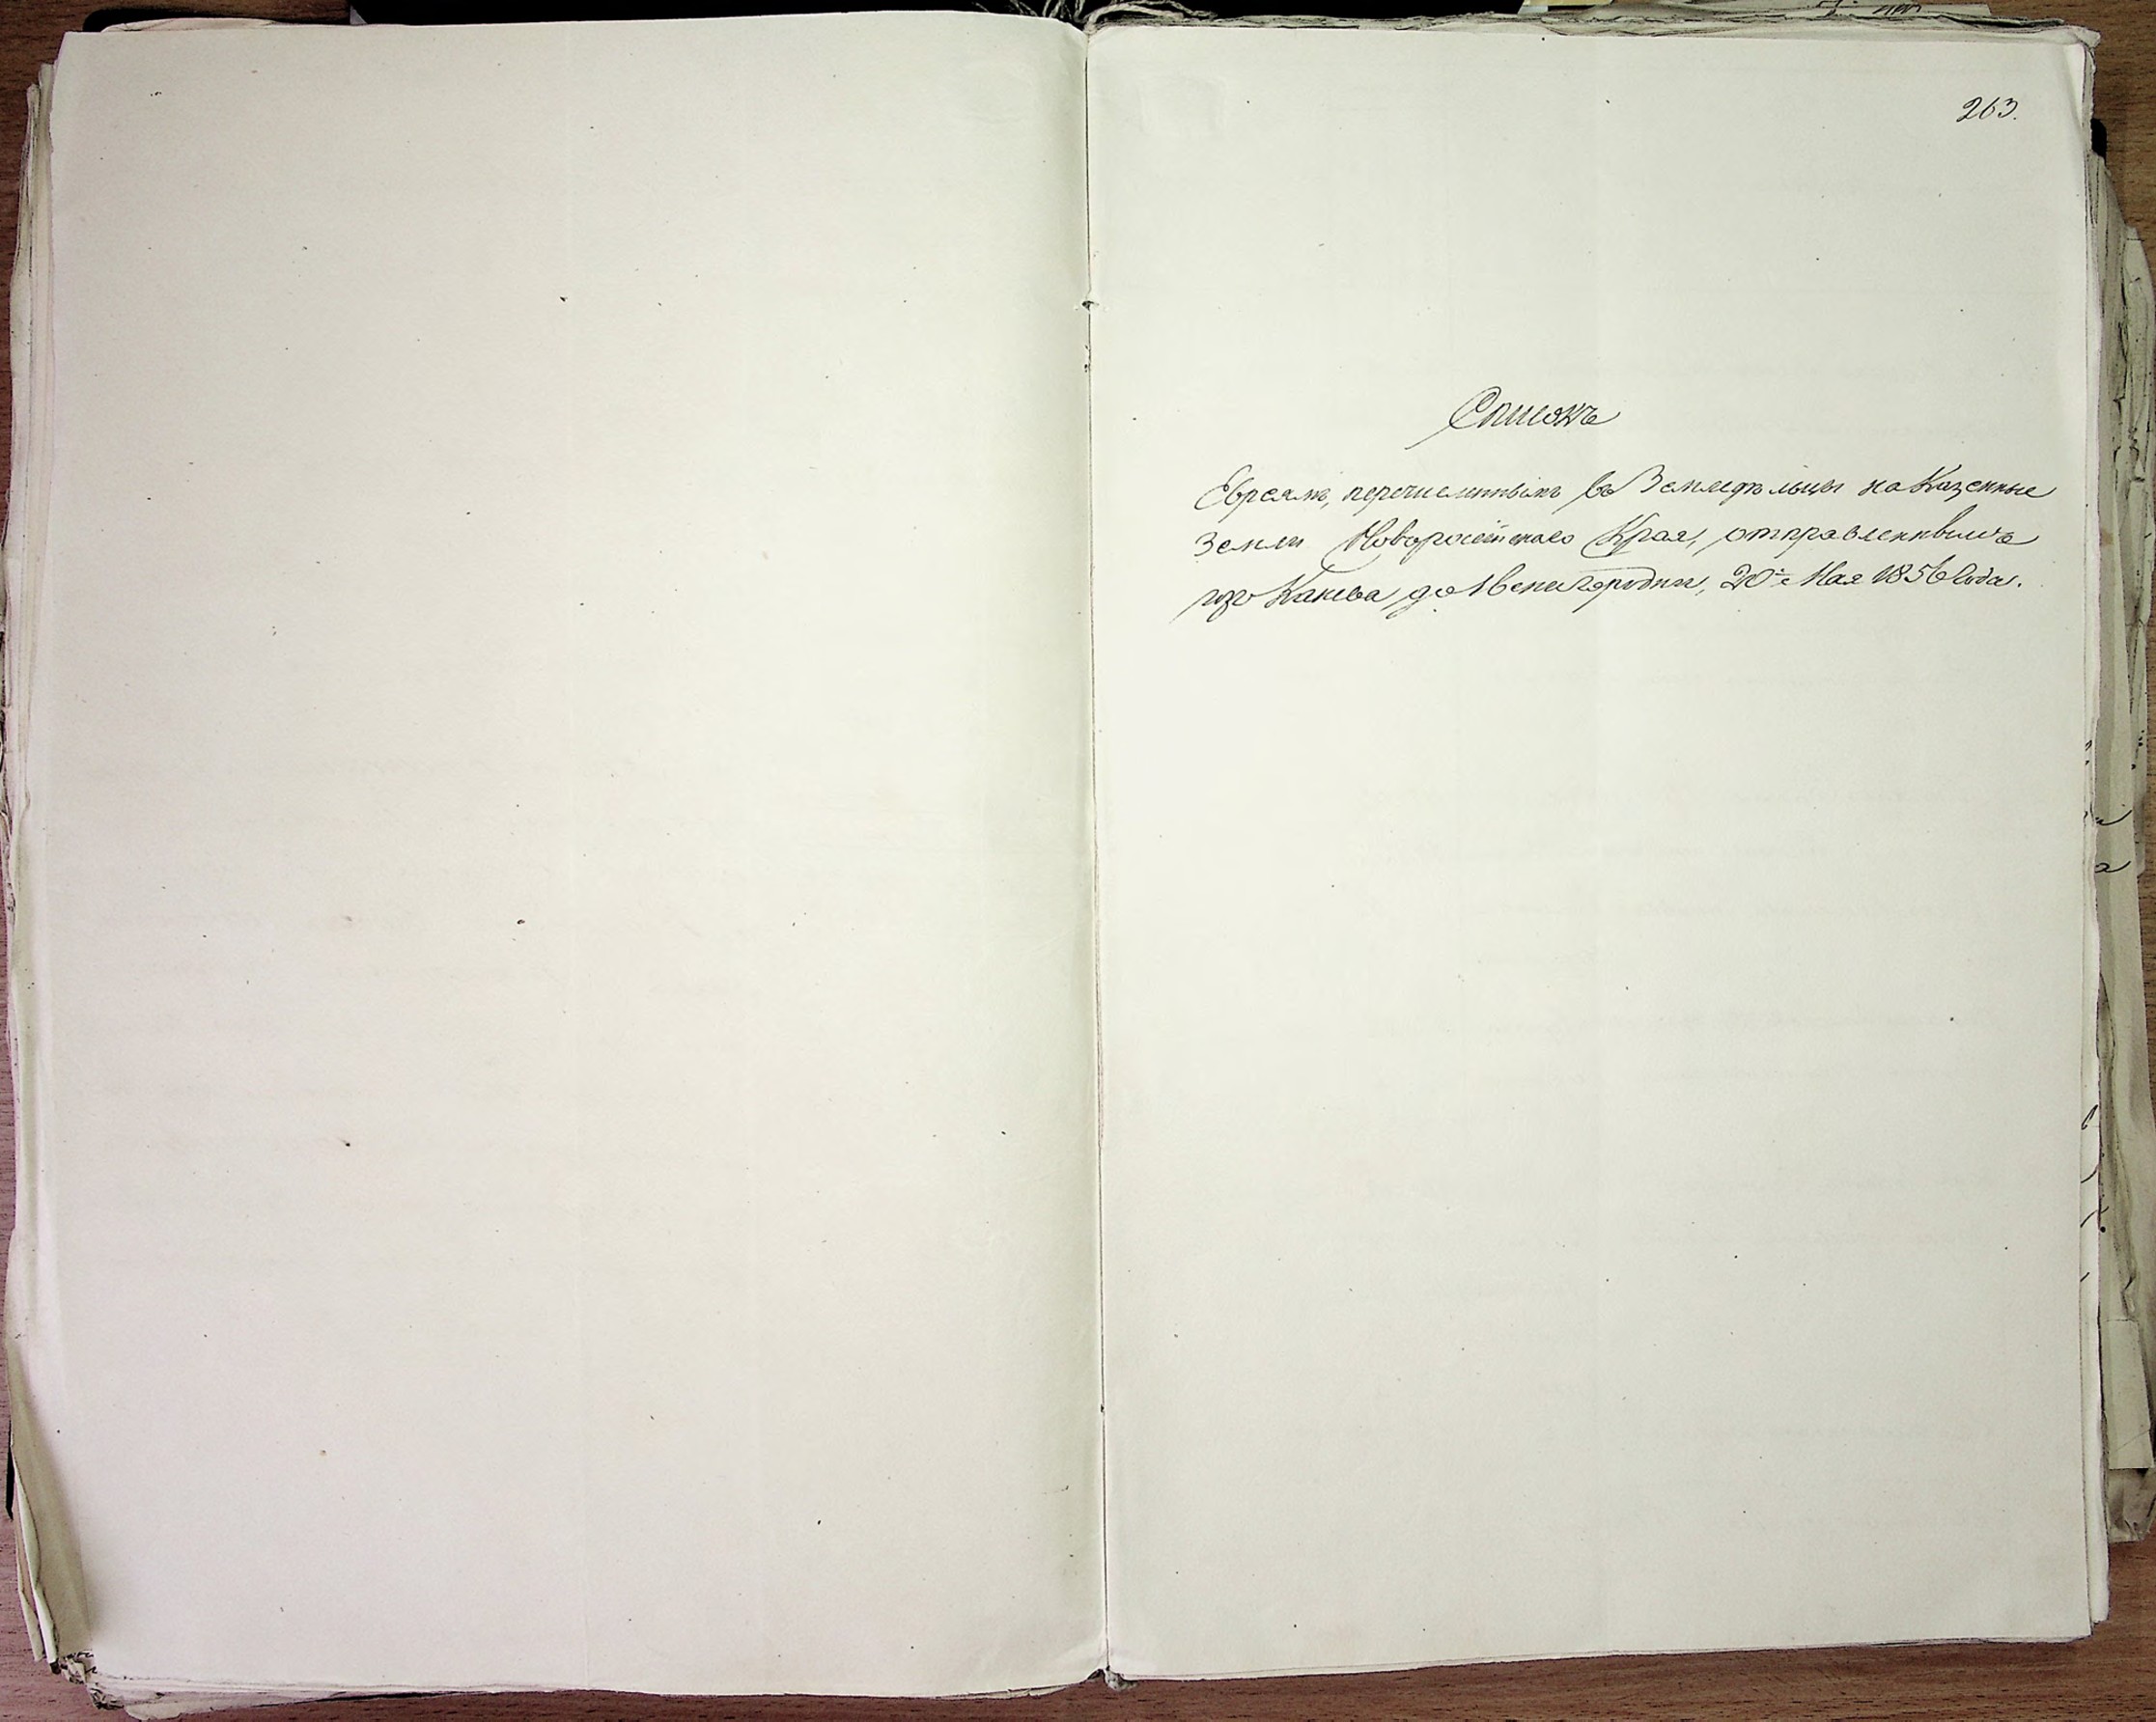 263.
Списокъ
Евреямъ, перечисленнымъ въ Земледѣльцы на Казенные
земли Новороссійскаго Края, отправленнымъ
изъ Канева до Звенигородки, 20го Мая 1856 года.